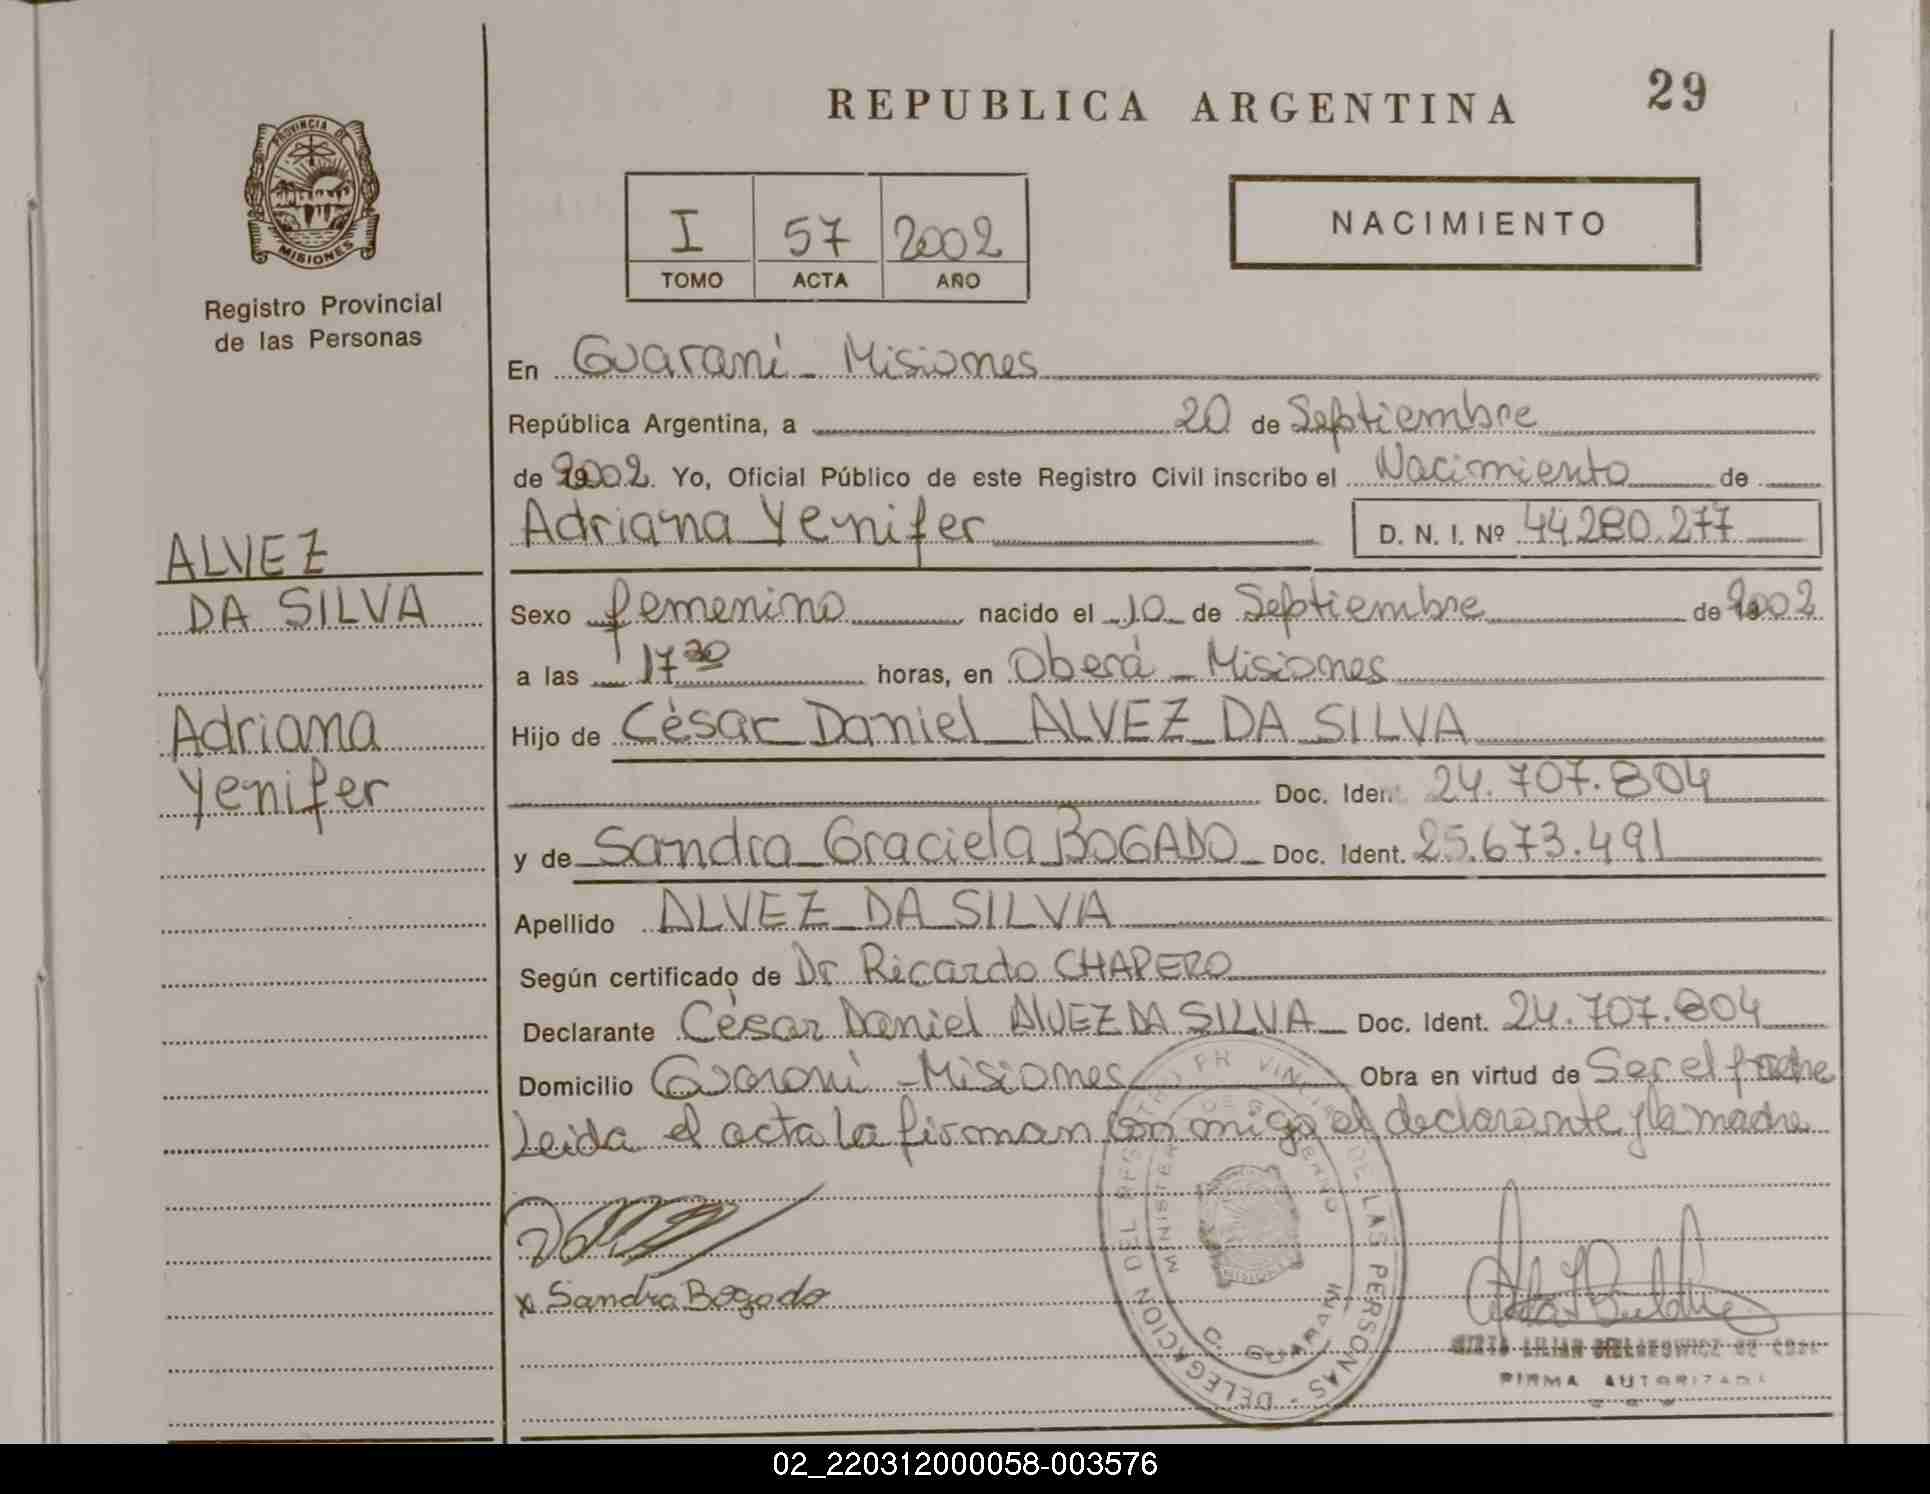 REPUBLICA ARGENTINA
29
PROVINCIA DE
MISIONES
Registro Provincial
de las Personas
I 57 2002
TOMO ACTA AÑO
NACIMIENTO
En Guaraní - Misiones
República Argentina, a 20 de Septiembre
de 2002. Yo, Oficial Público de este Registro Civil inscribo el Nacimiento de
Adriana Yenifer D. N. I. Nº 44.280.277
ALVEZ
DA SILVA
Adriana
Yenifer
Sexo femenino nacido el 10 de Septiembre de 2002
a las 17 30 horas, en Oberá - Misiones
Hijo de César Daniel ALVEZ DA SILVA
Doc. Iden. 24.707.804
y de Sandra Graciela BOGADO Doc. Ident. 25.673.491
Apellido ALVEZ DA SILVA
Según certificado de Dr Ricardo CHAPERO
Declarante César Daniel ALVEZ DA SILVA Doc. Ident. 24.707.804
Domicilio Guaraní - Misiones Obra en virtud de Ser el padre
Leida el acta la firman con migo el declarante y la madre
x Sandra Bogado
DELEGACION DEL REGISTRO PR VINCIAL DE LAS PERSONAS -
MINISTERIO DE GOBIERNO
MISIONES
C. GUARANI
MIRTA LILIAN BIELAKOWICZ DE
FIRMA AUTORIZADA
02_220312000058-003576